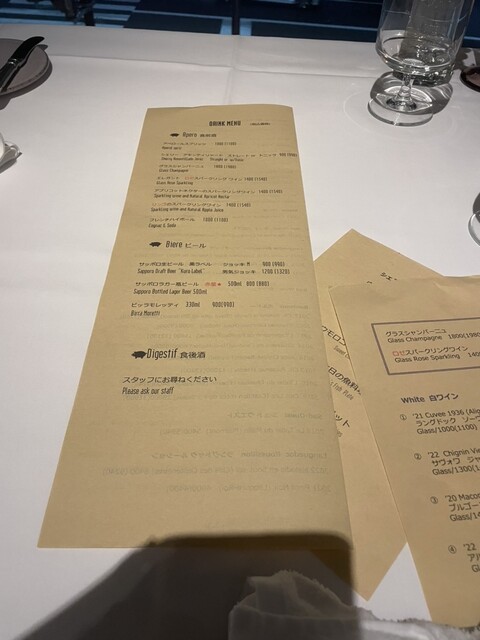 DRINK MENU
Apero 食前酒
アペロールスプリッツ 1000(1100)
Aperol spritz
Glass Champagne
ロゼスパークリング ワイン 1400(1540)
Glass Rose Sparkling
アプリコットネクターのスパークリングワイン 1400(1540)
Sparkling wine and Natural Apricot Nectar
リンゴのスパークリングワイン 1400(1540)
Sparkling wine and Natural Apple Juice
フレンチハイボール 1000(1100)
Cognac & Soda
Biere ビール
サッポロ生ビール 黒ラベル ジョッキM 900(990)
Sapporo Draft Beer "Kuro Label" 男気ジョッキ 1200(1320)
サッポロラガー瓶ビール 赤星★ 500ml 800(880)
Sapporo Bottled Lager Beer 500ml
ビッラモレッティ 330ml 900(990)
Birra Moretti
Digestif 食後酒
スタッフにお尋ねください
Please ask our staff
グラスシャンパーニュ
Glass Champagne 1800(1980
ロゼスパークリングワイン
Glass Rose Sparkling 140
White 白ワイン
① '21 Cuvee 1936 (Alig
ラングドック ソー
Glass/1000(1100)
② '22 Chignin Vie
サヴォワ ジャ
Glass/1300(1
③ '20 Macon
ブルゴー
Glass/14
④ '22
アル
Glas